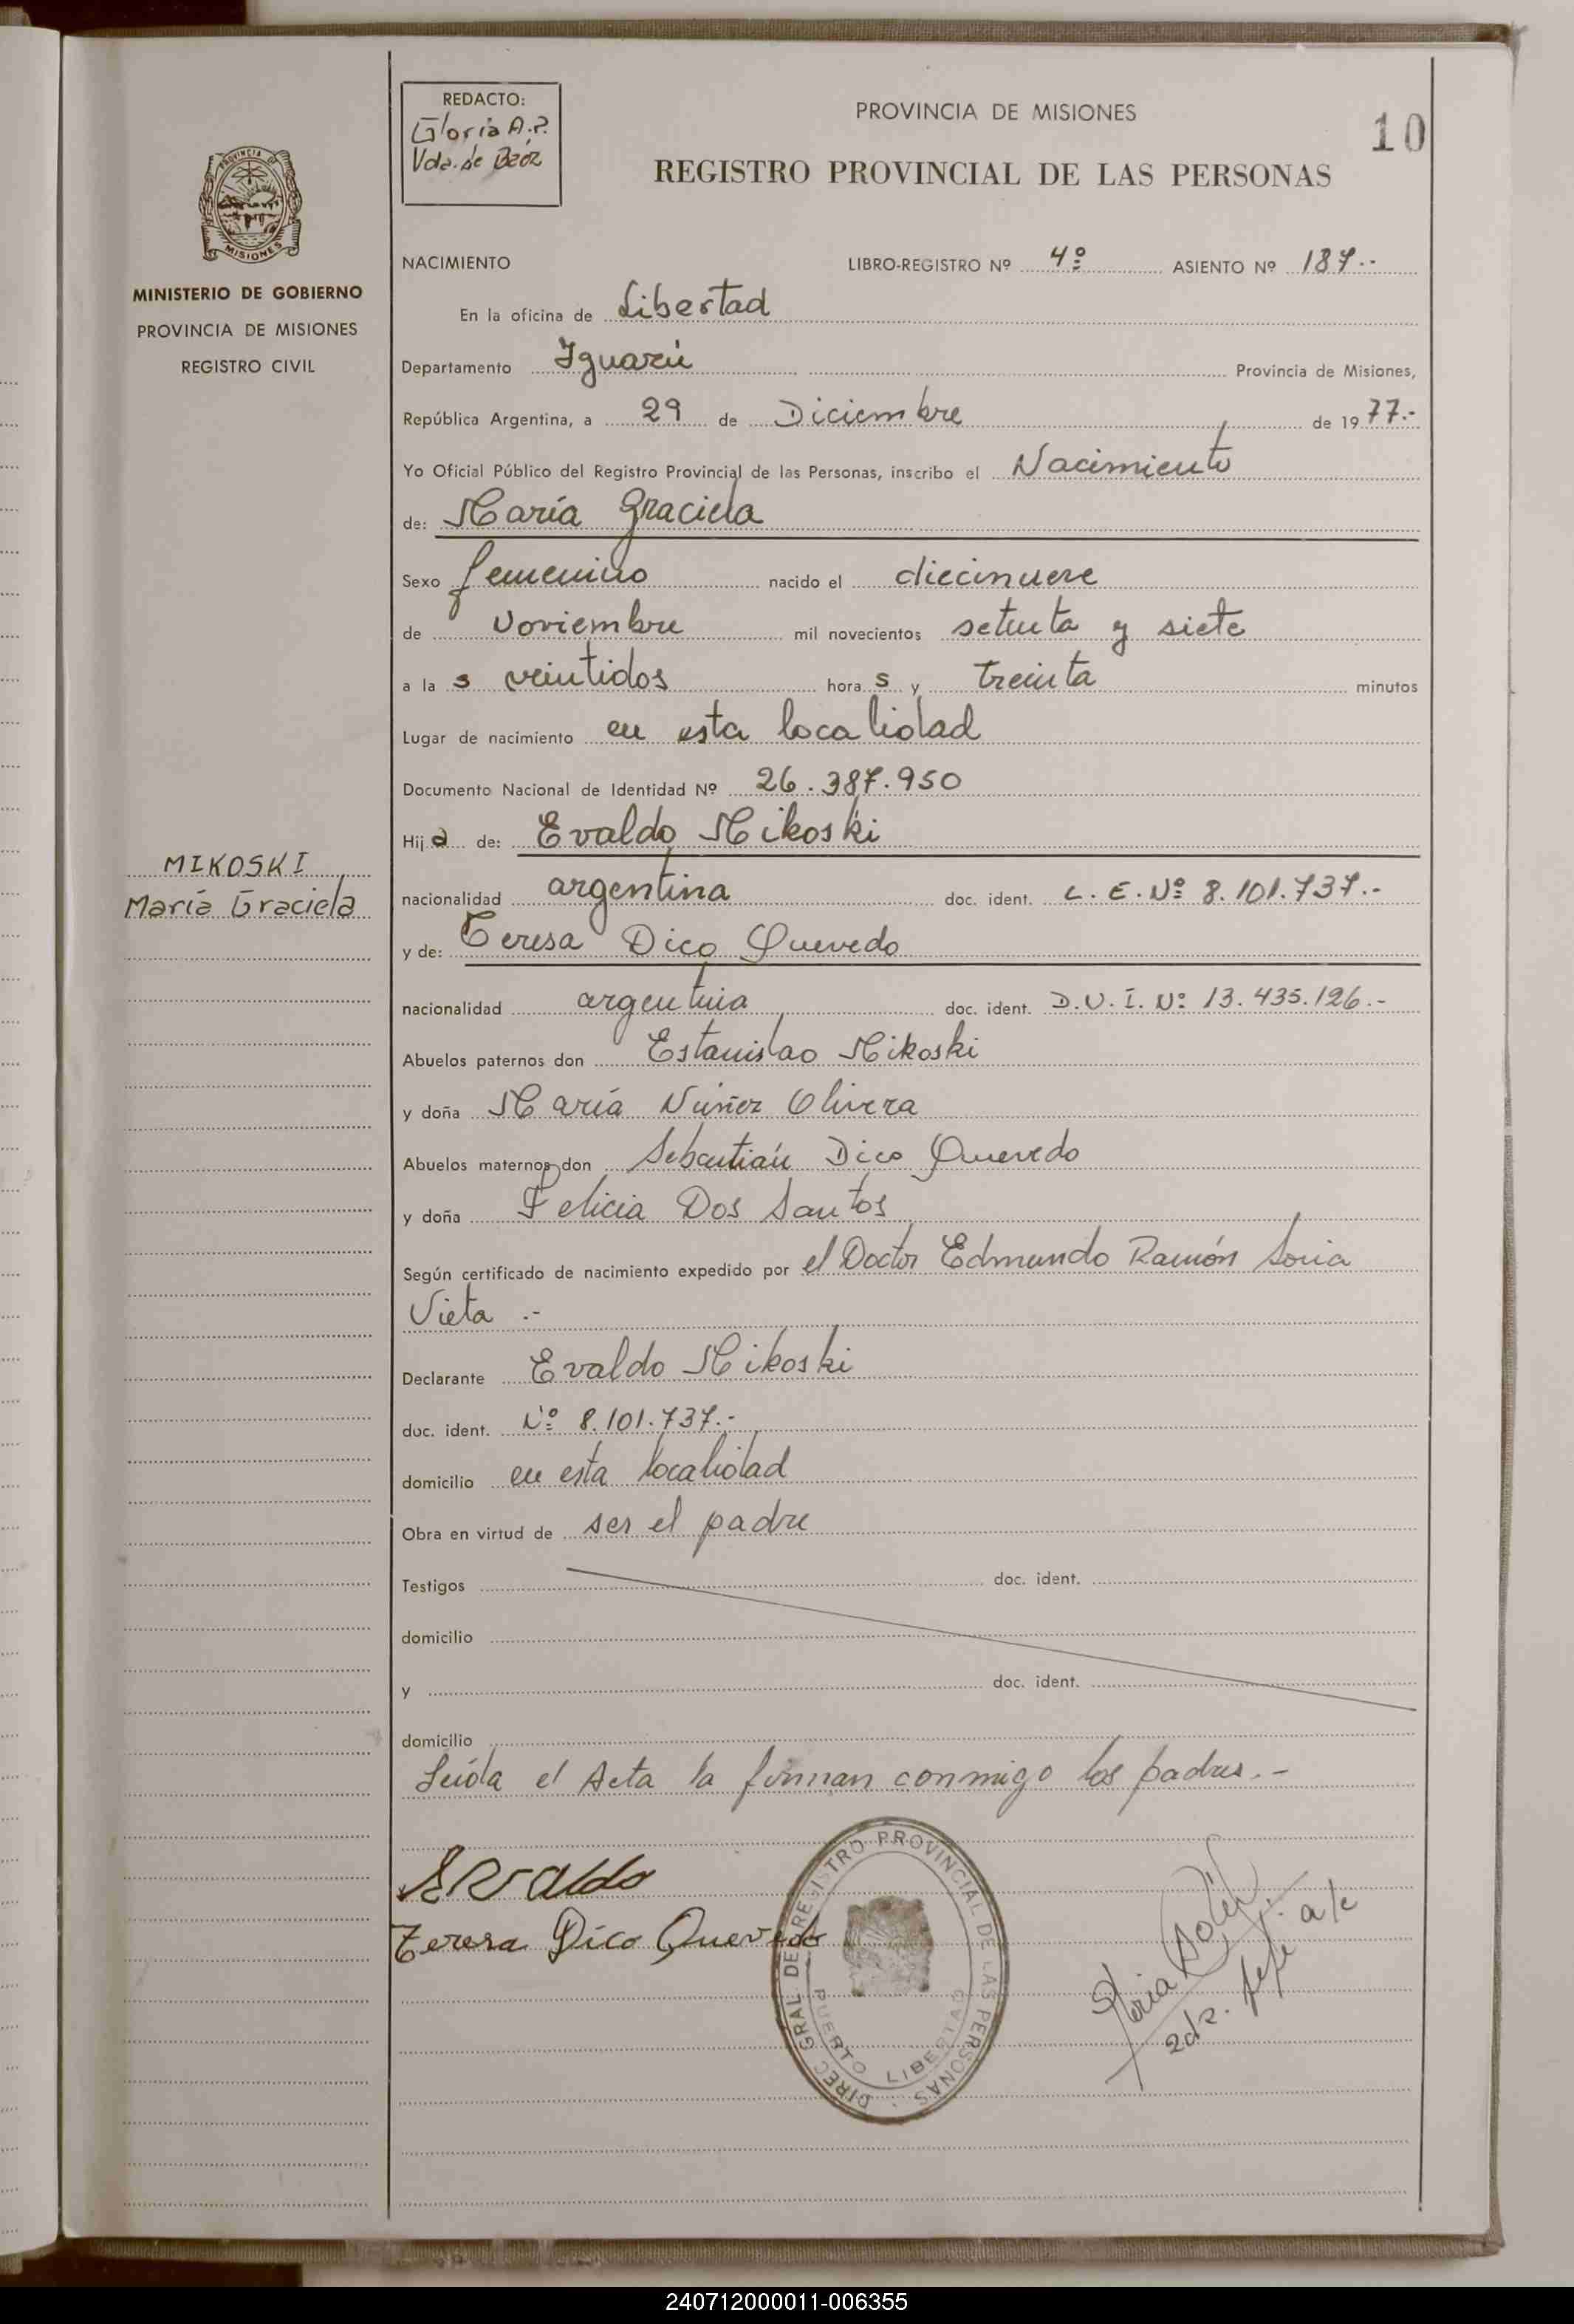 REDACTO:
Gloria A.P.
Vda. de Baéz
PROVINCIA DE MISIONES
10
REGISTRO PROVINCIAL DE LAS PERSONAS
PROVINCIA DE
MISIONES
MINISTERIO DE GOBIERNO
PROVINCIA DE MISIONES
REGISTRO CIVIL
NACIMIENTO LIBRO-REGISTRO Nº 4º ASIENTO Nº 187.-
En la oficina de Libertad
Departamento Iguazú Provincia de Misiones,
República Argentina, a 29 de Diciembre de 1977.-
Yo Oficial Público del Registro Provincial de las Personas, inscribo el Nacimiento
de: María Graciela
Sexo femenino nacido el diecinueve
de Noviembre mil novecientos setenta y siete
a la s veintidos hora s y treinta minutos
Lugar de nacimiento en esta localidad
Documento Nacional de Identidad Nº 26.387.950
Hij a de: Evaldo Mikoski
MIKOSKI
María Graciela
nacionalidad argentina doc. ident. L.E.Nº 8.101.737.-
y de: Teresa Dico Quevedo
nacionalidad argentina doc. ident. D.N.I. Nº 13.435.126.-
Abuelos paternos don Estanislao Mikoski
y doña María Núñez Olivera
Abuelos maternos don Sebastián Dico Quevedo
y doña Felicia Dos Santos
Según certificado de nacimiento expedido por el Doctor Edmundo Ramón Soria
Vieta.-
Declarante Evaldo Mikoski
doc. ident. Nº 8.101.737.-
domicilio en esta localidad
Obra en virtud de ser el padre
Testigos doc. ident.
domicilio
y doc. ident.
domicilio
Leída el Acta la firman conmigo los padres.-
Evaldo
Teresa Dico Quevedo
DIREC GRAL DE REGISTRO PROVINCIAL DE LAS PERSONAS
PUERTO LIBERTAD
a/c
240712000011-006355